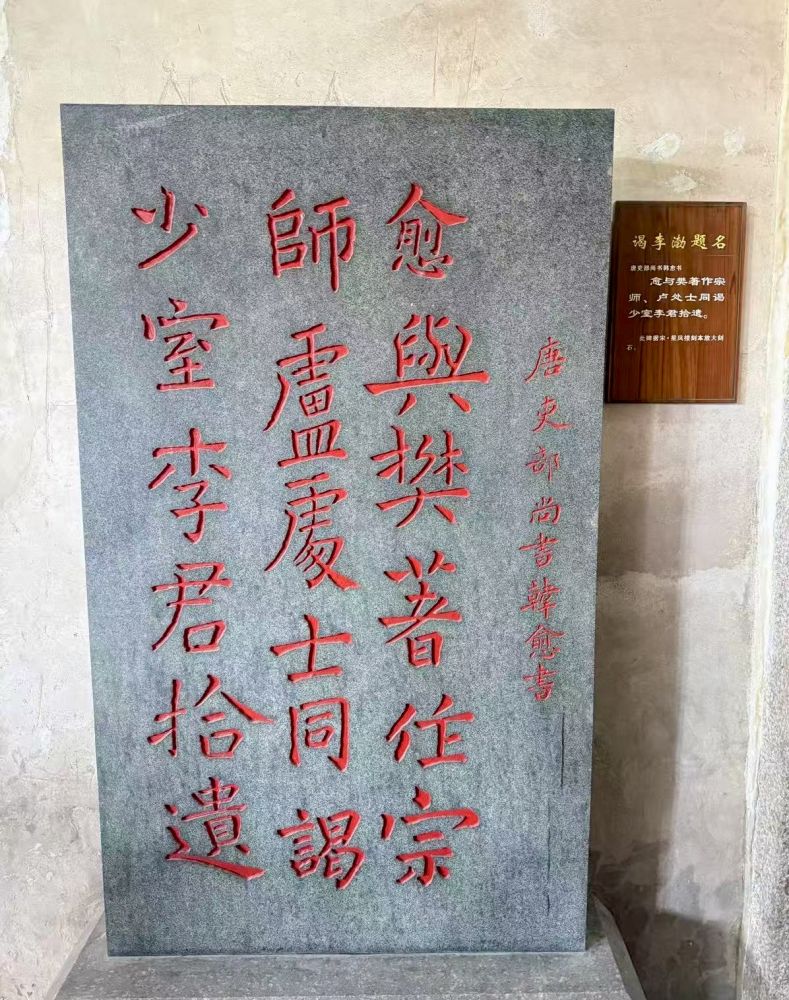 唐吏部尚書韓愈書
愈與樊著作宗
師盧處士同謁
少室李君拾遺
谒李渤题名
唐吏部尚书韩愈书
愈与樊著作宗
师、卢处士同谒
少室李君拾遗。
此碑据宋·星凤楼刻本放大刻
石。